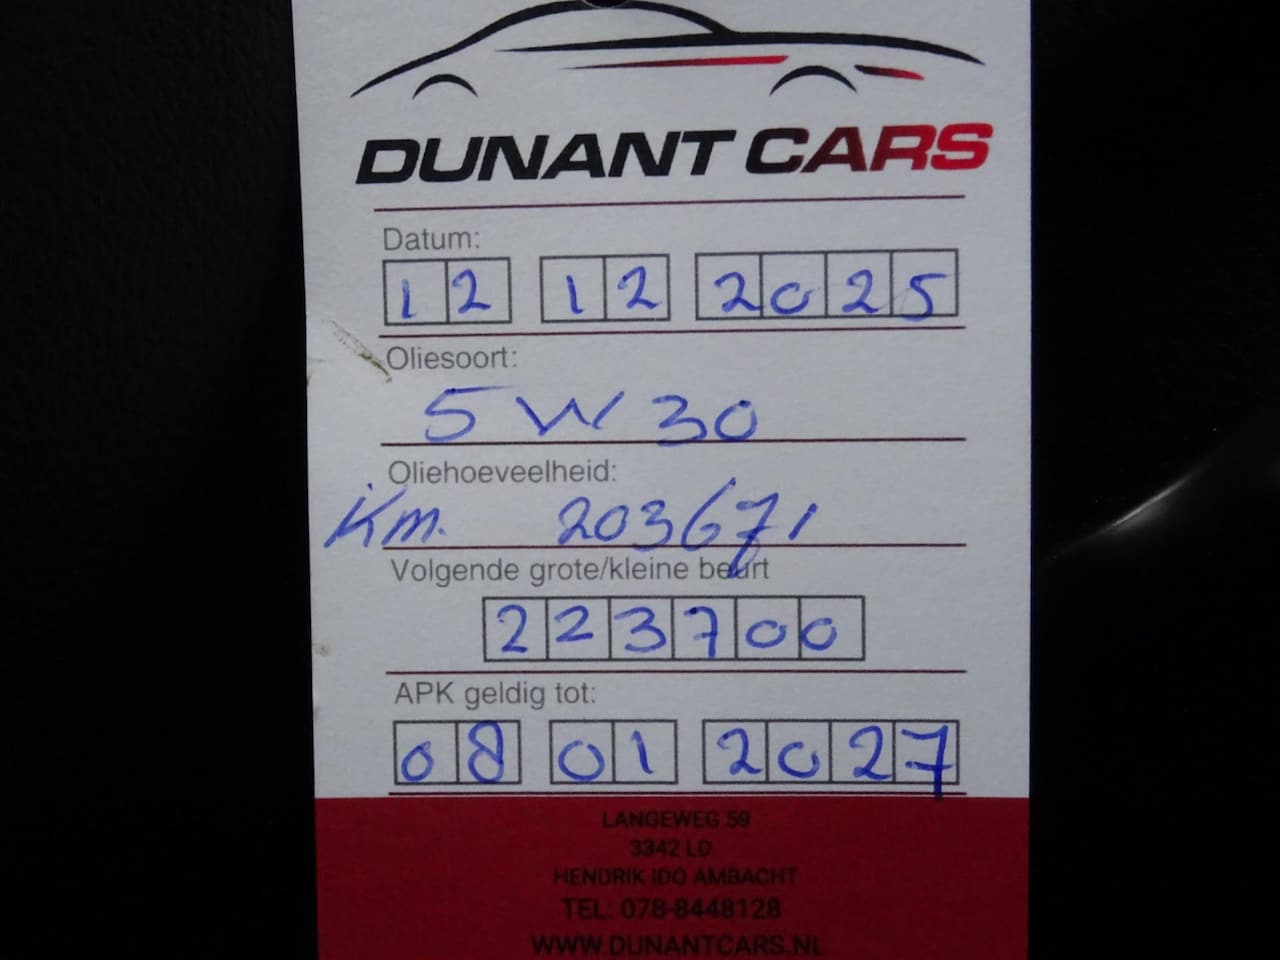 DUNANT CARS
Datum:
12 12 2025
Oliesoort:
5W30
Oliehoeveelheid:
Km. 203671
Volgende grote/kleine beurt
223700
APK geldig tot:
08 01 2027
LANGEWEG 59
3342 LD
HENDRIK IDO AMBACHT
TEL: 078-8448128
WWW.DUNANTCARS.NL